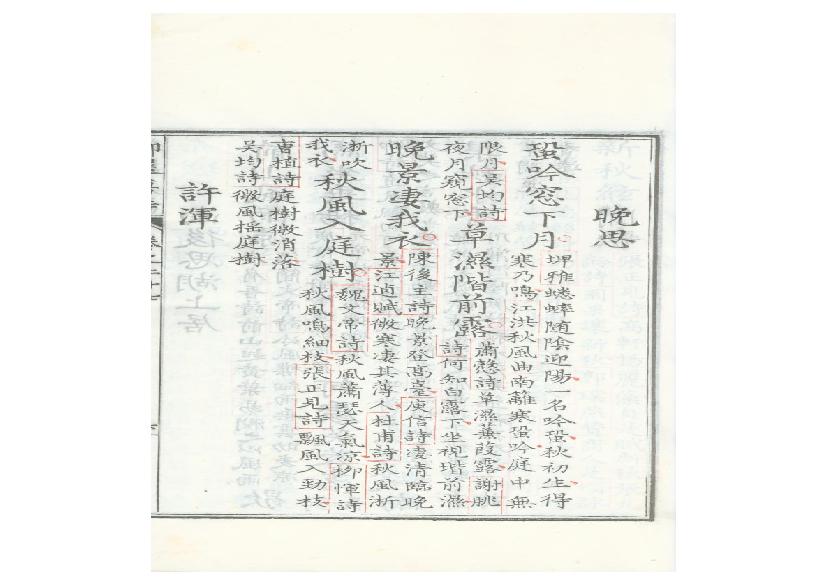 晚思
蛩吟窓下月
埤雅蟋蟀随陰迎陽一名吟蛩秋初生得
寒乃鳴江洪秋風曲南離寒蛩吟庭中無
限月吳均詩
夜月窺窓下
草濕階前露
蕭慤詩草濕蒹葭露謝朓
詩何知白露下坐視堦前濕
晚景淒我衣
陳後主詩晚景登高臺庾信詩凄清臨晚
景江逌賦微寒凄其薄人杜甫詩秋風淅
淅吹
我衣
秋風入庭樹
魏文帝詩秋風蕭瑟天氣凉柳惲詩
秋風鳴細枝張正見詩飄風入勁枝
曹植詩庭樹微消落
吳均詩微風揺庭樹
許渾